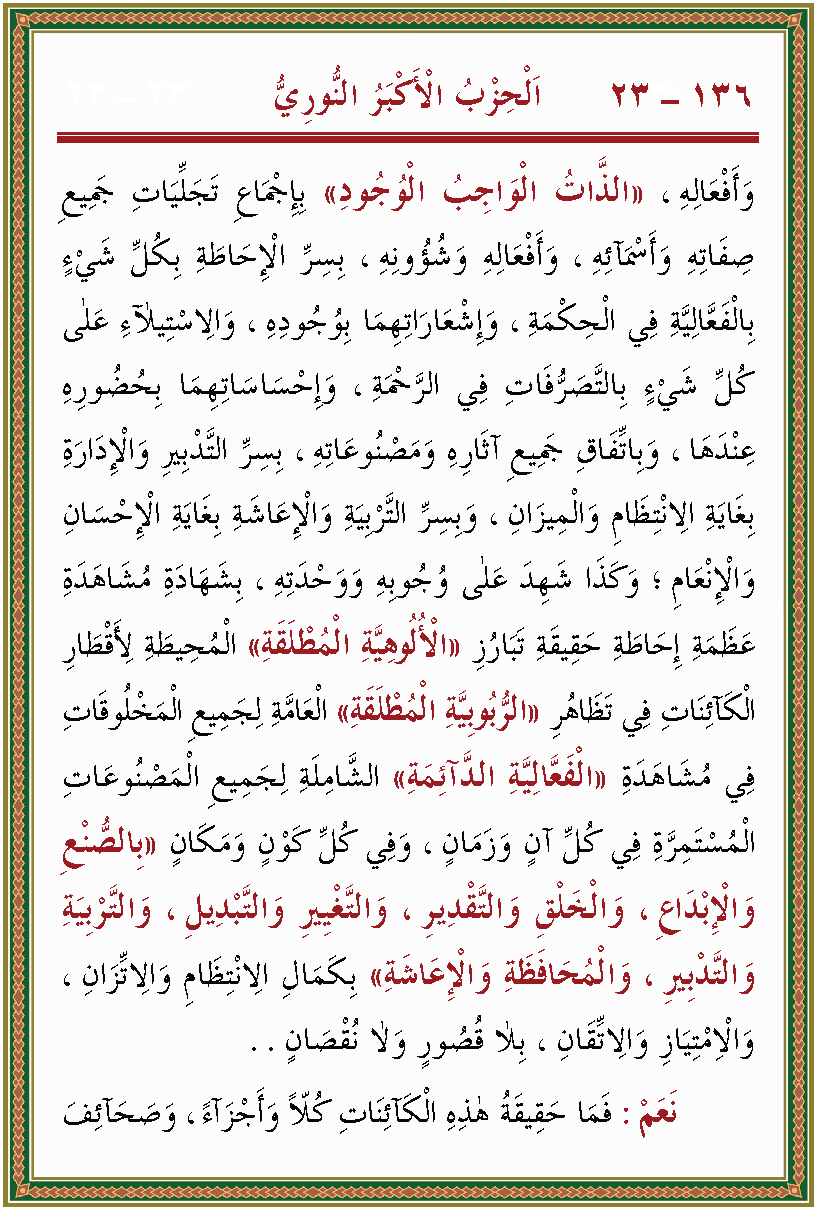 ١٣٦ – ٢٣ اَلْحِزْبُ الْأَكْبَرُ النُّورِيُّ
وَأَفْعَالِهِ ، «الذَّاتُ الْوَاجِبُ الْوُجُودِ» بِإِجْمَاعِ تَجَلِّيَاتِ جَمِيعِ
صِفَاتِهِ وَأَسْمَآئِهِ ، وَأَفْعَالِهِ وَشُؤُونِهِ ، بِسِرِّ الْإِحَاطَةِ بِكُلِّ شَيْءٍ
بِالْفَعَّالِيَّةِ فِي الْحِكْمَةِ ، وَإِشْعَارَاتِهِمَا بِوُجُودِهِ ، وَالِاسْتِيلَآءِ عَلٰى
كُلِّ شَيْءٍ بِالتَّصَرُّفَاتِ فِي الرَّحْمَةِ ، وَإِحْسَاسَاتِهِمَا بِحُضُورِهِ
عِنْدَهَا ، وَبِاتِّفَاقِ جَمِيعِ آثَارِهِ وَمَصْنُوعَاتِهِ ، بِسِرِّ التَّدْبِيرِ وَالْإِدَارَةِ
بِغَايَةِ الِانْتِظَامِ وَالْمِيزَانِ ، وَبِسِرِّ التَّرْبِيَةِ وَالْإِعَاشَةِ بِغَايَةِ الْإِحْسَانِ
وَالْإِنْعَامِ ؛ وَكَذَا شَهِدَ عَلٰى وُجُوبِهِ وَوَحْدَتِهِ ، بِشَهَادَةِ مُشَاهَدَةِ
عَظَمَةِ إِحَاطَةِ حَقِيقَةِ تَبَارُزِ «الْأُلُوهِيَّةِ الْمُطْلَقَةِ» الْمُحِيطَةِ لِأَقْطَارِ
الْكَآئِنَاتِ فِي تَظَاهُرِ «الرُّبُوبِيَّةِ الْمُطْلَقَةِ» الْعَامَّةِ لِجَمِيعِ الْمَخْلُوقَاتِ
فِي مُشَاهَدَةِ «الْفَعَّالِيَّةِ الدَّآئِمَةِ» الشَّامِلَةِ لِجَمِيعِ الْمَصْنُوعَاتِ
الْمُسْتَمِرَّةِ فِي كُلِّ آنٍ وَزَمَانٍ ، وَفِي كُلِّ كَوْنٍ وَمَكَانٍ «بِالصُّنْعِ
وَالْإِبْدَاعِ ، وَالْخَلْقِ وَالتَّقْدِيرِ ، وَالتَّغْيِيرِ وَالتَّبْدِيلِ ، وَالتَّرْبِيَةِ
وَالتَّدْبِيرِ ، وَالْمُحَافَظَةِ وَالْإِعَاشَةِ» بِكَمَالِ الِانْتِظَامِ وَالِاتِّزَانِ ،
وَالْإِمْتِيَازِ وَالِاتِّقَانِ ، بِلَا قُصُورٍ وَلَا نُقْصَانٍ . .
نَعَمْ : فَمَا حَقِيقَةُ هٰذِهِ الْكَآئِنَاتِ كُلًّا وَأَجْزَآءً ، وَصَحَآئِفَ